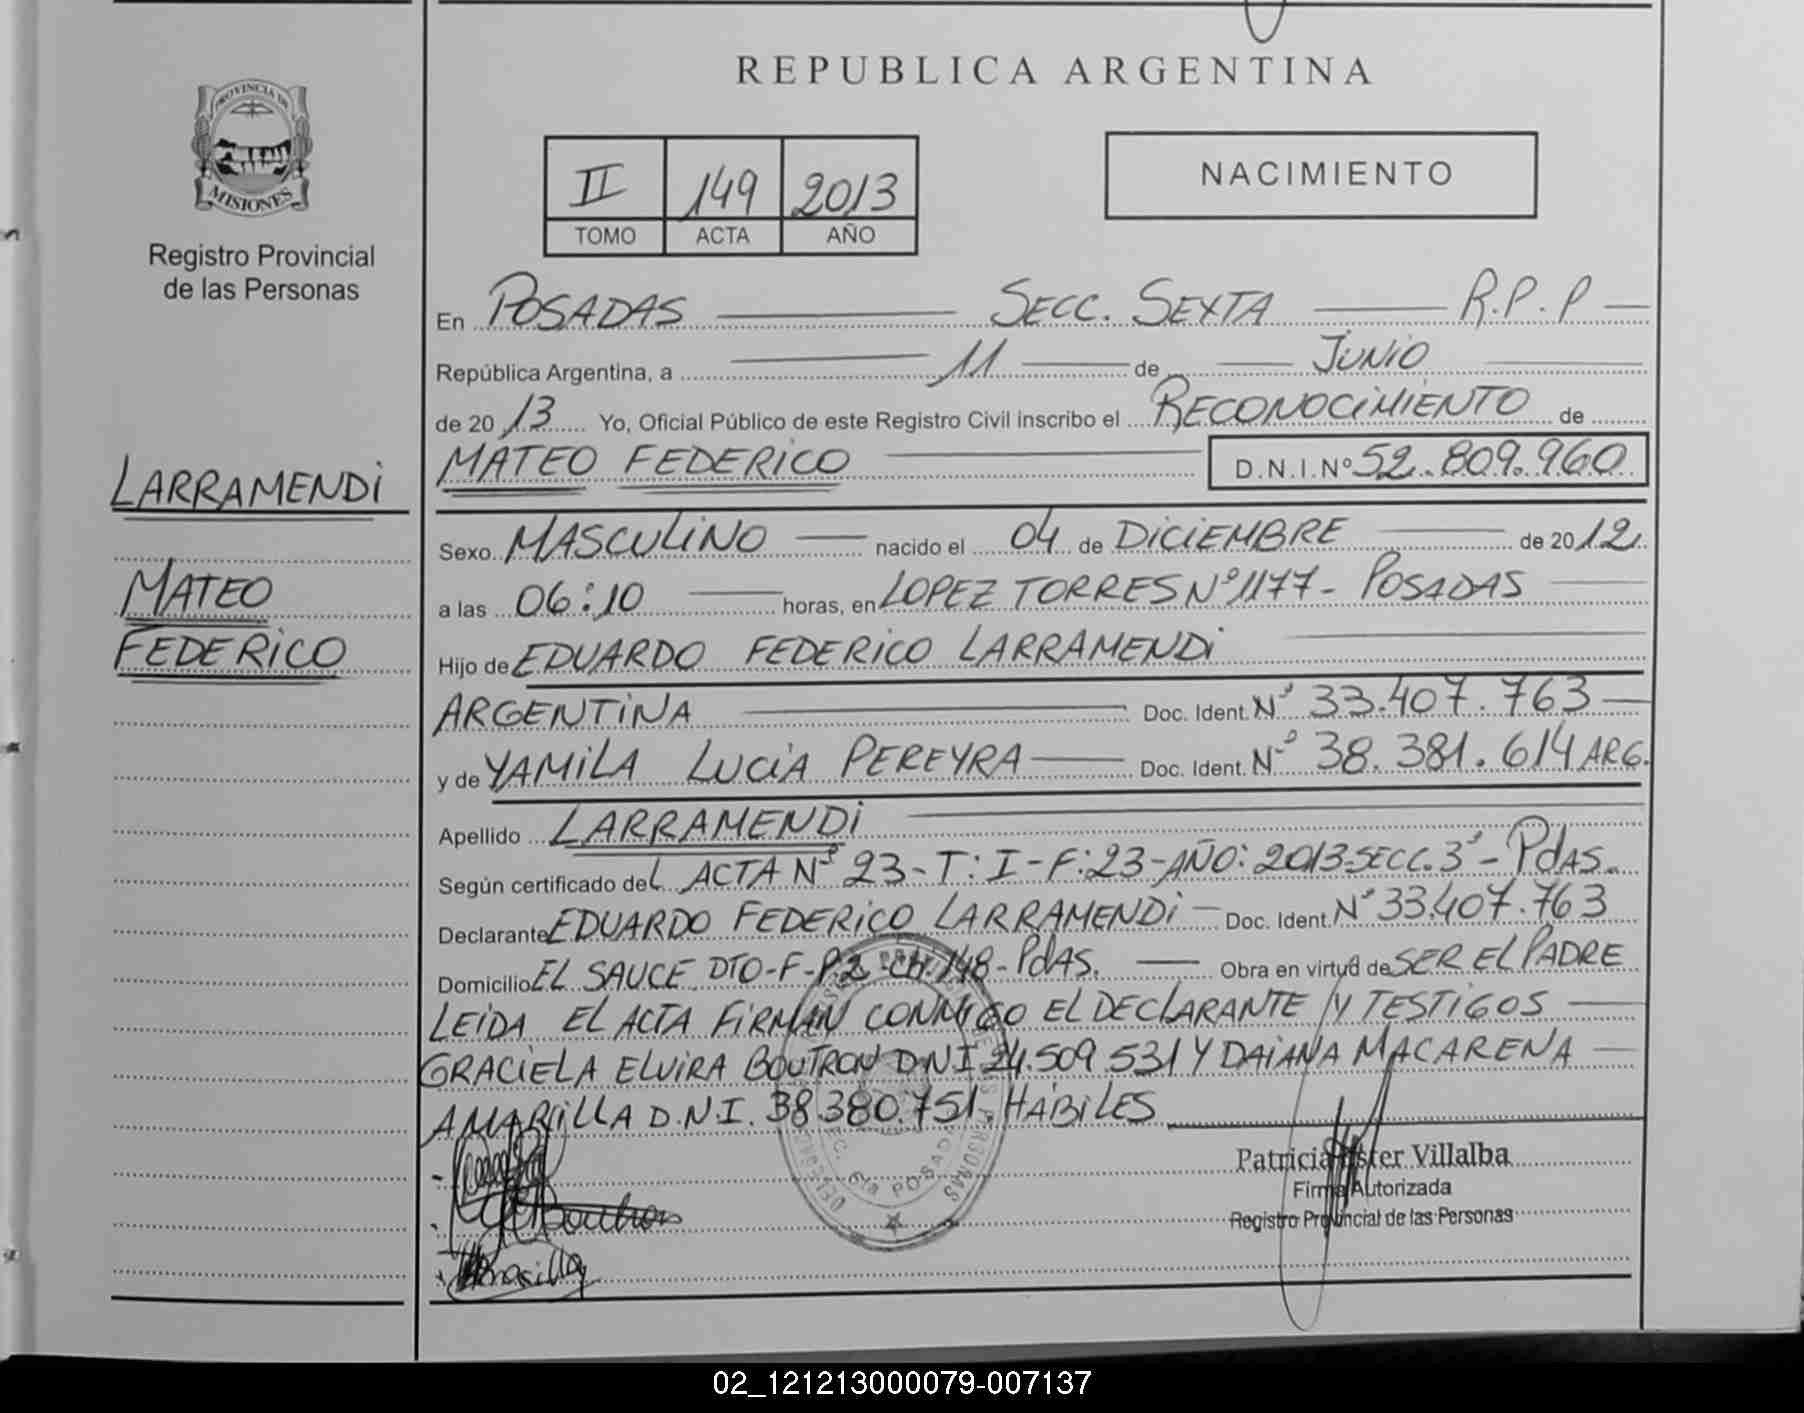 REPUBLICA ARGENTINA
PROVINCIA DE
MISIONES
Registro Provincial
de las Personas
LARRAMENDI
MATEO
FEDERICO
II 149 2013
TOMO ACTA AÑO
NACIMIENTO
En POSADAS SECC. SEXTA R.P.P
República Argentina, a 11 de JUNIO
de 2013 Yo, Oficial Público de este Registro Civil inscribo el RECONOCIMIENTO de
MATEO FEDERICO D.N.I.Nº 52.809.960
Sexo MASCULINO nacido el 04 de DICIEMBRE de 2012
a las 06:10 horas, en LOPEZ TORRES Nº 1177 - POSADAS
Hijo de EDUARDO FEDERICO LARRAMENDI
ARGENTINA Doc. Ident. Nº 33.407.763
y de YAMILA LUCIA PEREYRA Doc. Ident. Nº 38.381.614 ARG.
Apellido LARRAMENDI
Según certificado del ACTA Nº 23-T:I-F:23-AÑO:2013-SECC.3ª-Pdas.
Declarante EDUARDO FEDERICO LARRAMENDI - Doc. Ident. Nº 33.407.763
Domicilio EL SAUCE DTO-F-P.2-CH.148-PdAS. Obra en virtud de SER EL PADRE
LEIDA EL ACTA FIRMAN CONMIGO EL DECLARANTE Y TESTIGOS
GRACIELA ELVIRA BOUTRON D.N.I 24.509.531 Y DAIANA MACARENA
AMARILLA D.N.I. 38.380.751. HÁBILES
Patricia Ester Villalba
Firma Autorizada
Registro Provincial de las Personas
02_121213000079-007137